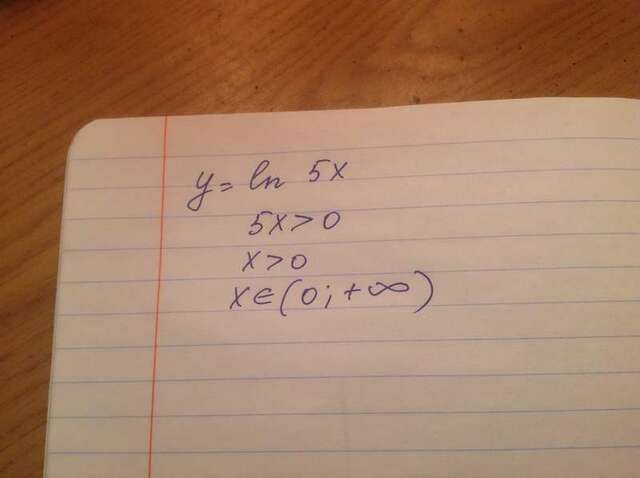 y = ln 5x
5x > 0
x > 0
x ∈ (0; +∞)